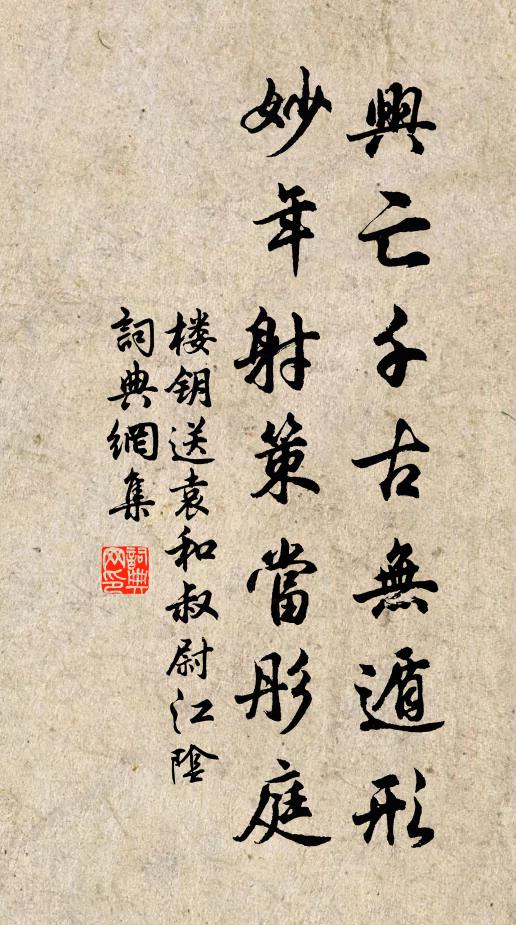 興亡千古無遁形
妙年射策當彤庭
楼钥送袁和叔尉江陰
詞典網集
詞典网印